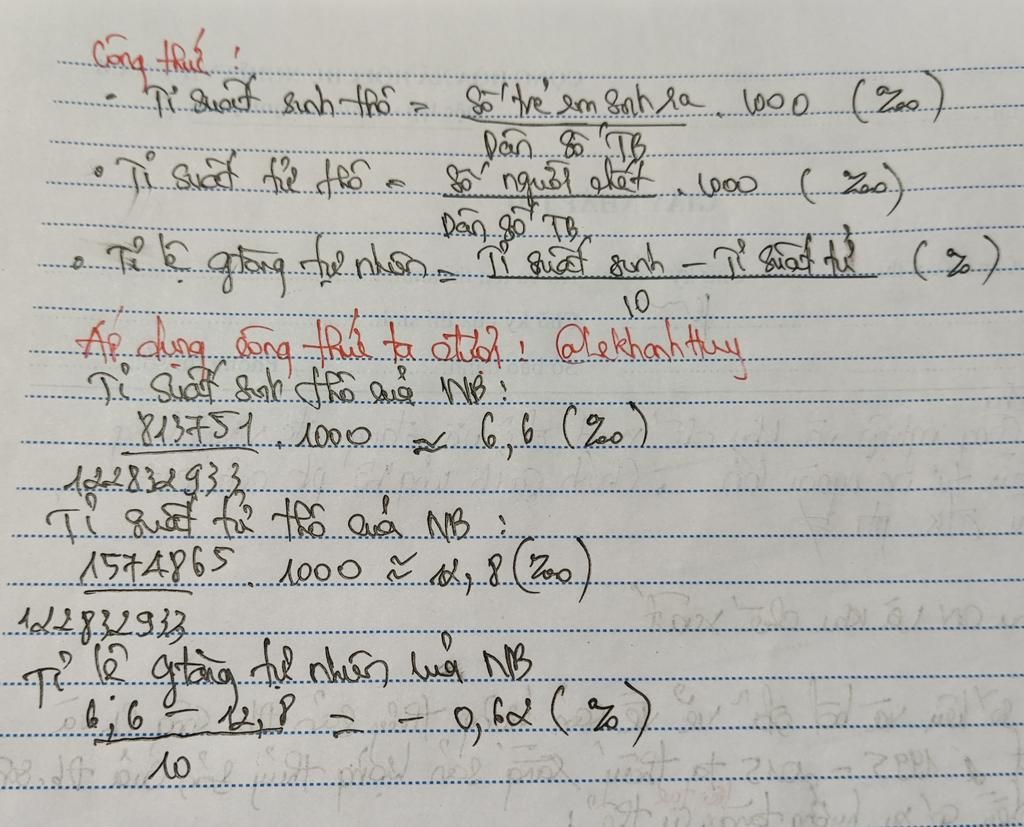 Công thức :
- Tỉ suất sinh thô = Số trẻ em sinh ra . 1000 (‰)
Dân số TB
• Tỉ suất tử thô = Số người chết . 1000 (‰)
Dân số TB
• Tỉ lệ gtăng tự nhiên = Tỉ suất sinh - Tỉ suất tử (%)
10
Áp dụng công thức ta được : @lekhanhtuy
Tỉ suất sinh thô của NB :
813751 . 1000 ≈ 6,6 (‰)
122832933
Tỉ suất tử thô của NB :
1574865 . 1000 ≈ 12,8 (‰)
122832933
Tỉ lệ gtăng tự nhiên của NB
6,6 - 12,8 = - 0,62 (%)
10